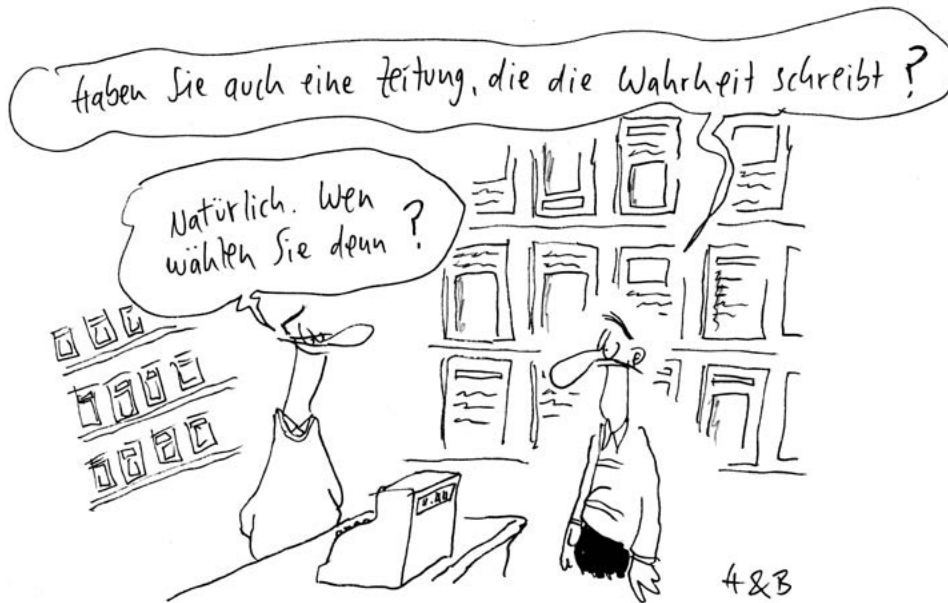 Haben Sie auch eine Zeitung, die die Wahrheit schreibt?
Natürlich. Wen
wählen Sie denn?
H&B